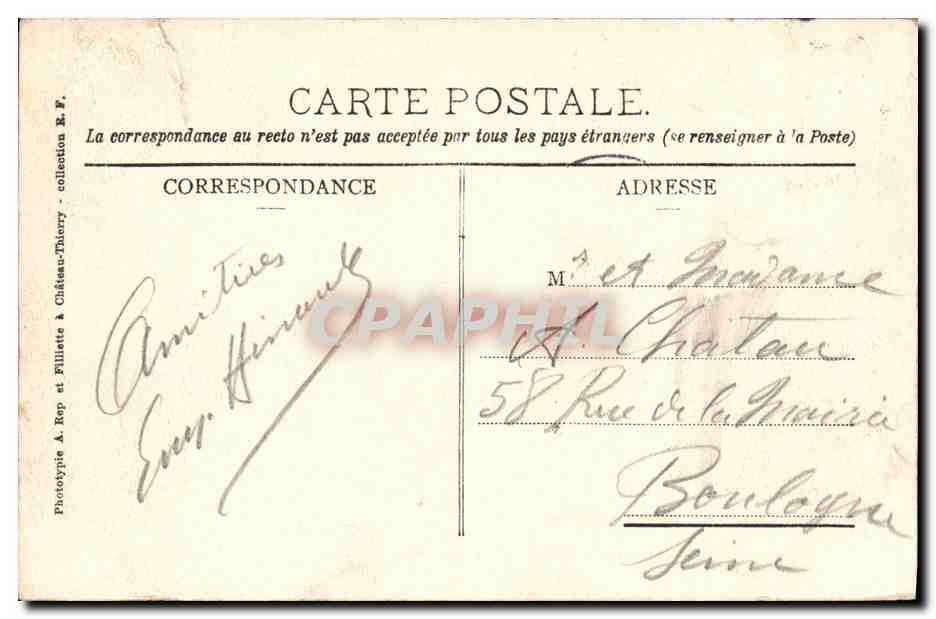 CARTE POSTALE.
La correspondance au recto n'est pas acceptée par tous les pays étrangers (se renseigner à la Poste)
CORRESPONDANCE
Amitiés
Eug. Hénault
ADRESSE
Mr et Madame
A. Chatau
58 Rue de la Mairie
Boulogne
Seine
Phototypie A. Rep et Filliette à Château-Thierry - collection R. F.
CPAPHIL